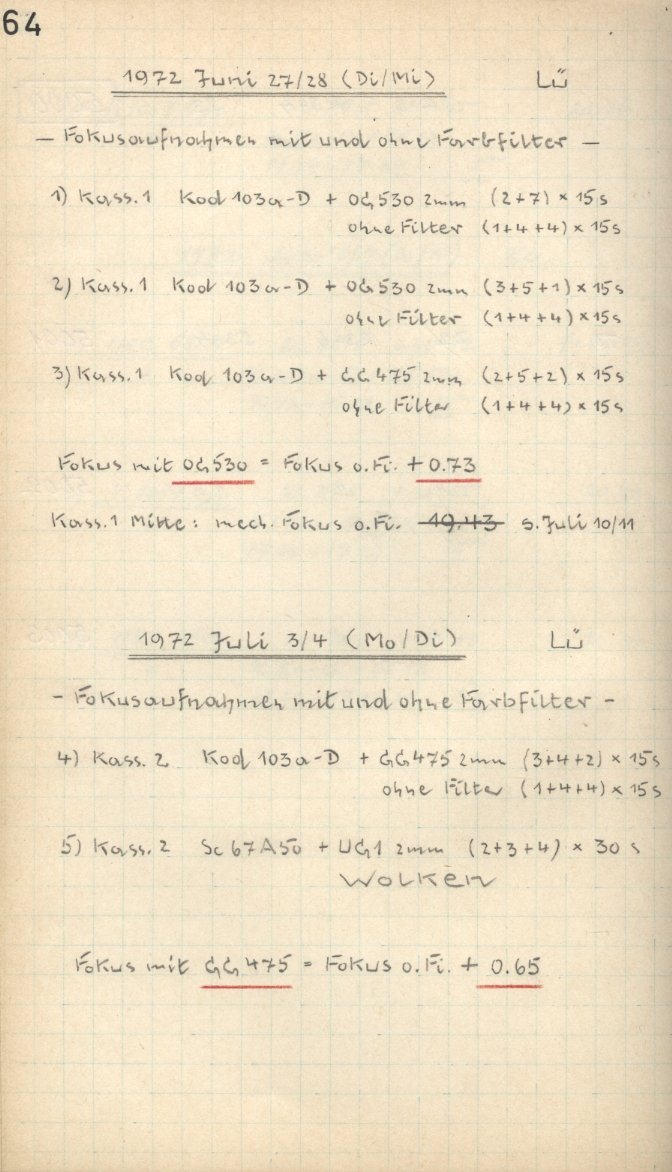 64
1972 Juni 27/28 (Di/Mi) Lü
— Fokusaufnahmen mit und ohne Farbfilter —
1) Kass. 1 Kod 103a-D + OG530 2mm (2+7) × 15s
ohne Filter (1+4+4) × 15s
2) Kass. 1 Kod 103a-D + OG530 2mm (3+5+1) × 15s
ohne Filter (1+4+4) × 15s
3) Kass. 1 Kod 103a-D + GG475 2mm (2+5+2) × 15s
ohne Filter (1+4+4) × 15s
Fokus mit OG530 = Fokus o. Fi. + 0.73
Kass. 1 Mitte: mech. Fokus o. Fi. 19.43 s. Juli 10/11
1972 Juli 3/4 (Mo/Di) Lü
- Fokusaufnahmen mit und ohne Farbfilter -
4) Kass. 2 Kod 103a-D + GG475 2mm (3+4+2) × 15s
ohne Filter (1+4+4) × 15s
5) Kass. 2 Sc 67A50 + UG1 2mm (2+3+4) × 30 s
WOLKEN
Fokus mit GG475 = Fokus o. Fi. + 0.65